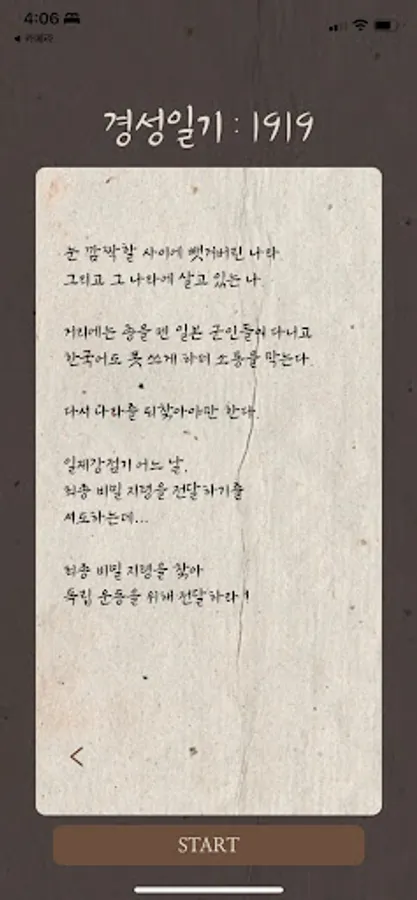 4:06
◀ 카메라
경성일기 : 1919
눈 깜짝할 사이에 뺏겨버린 나라
그리고 그 나라에 살고 있는 나.
거리에는 총을 멘 일본 군인들이 다니고
한국어도 못 쓰게 하며 소통을 막는다.
다시 나라를 되찾아야만 한다.
일제강점기 어느 날,
최종 비밀 지령을 전달하기를
시도하는데...
최종 비밀 지령을 찾아
독립 운동을 위해 전달하라!
<
START